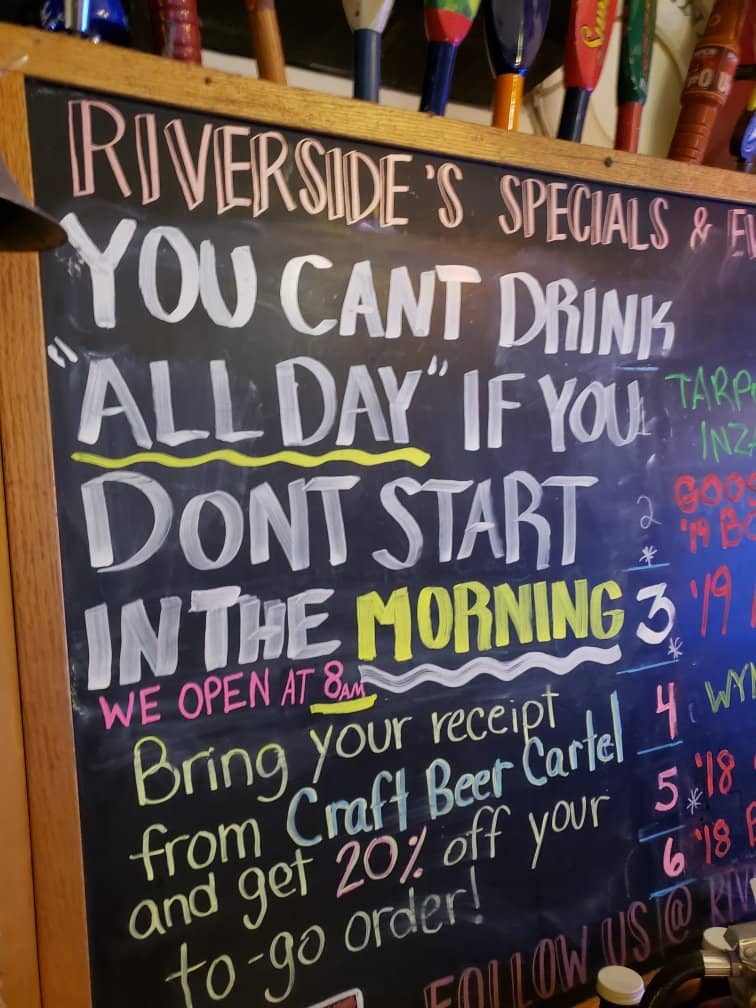 RIVERSIDE'S SPECIALS &
YOU CANT DRINK
"ALL DAY" IF YOU
DONT START
IN THE MORNING
WE OPEN AT 8AM
Bring your receipt
from Craft Beer Cartel
and get 20% off your
to-go order!
FOLLOW US @
2
*
3 '19
*
4
5 * '18
6 '18